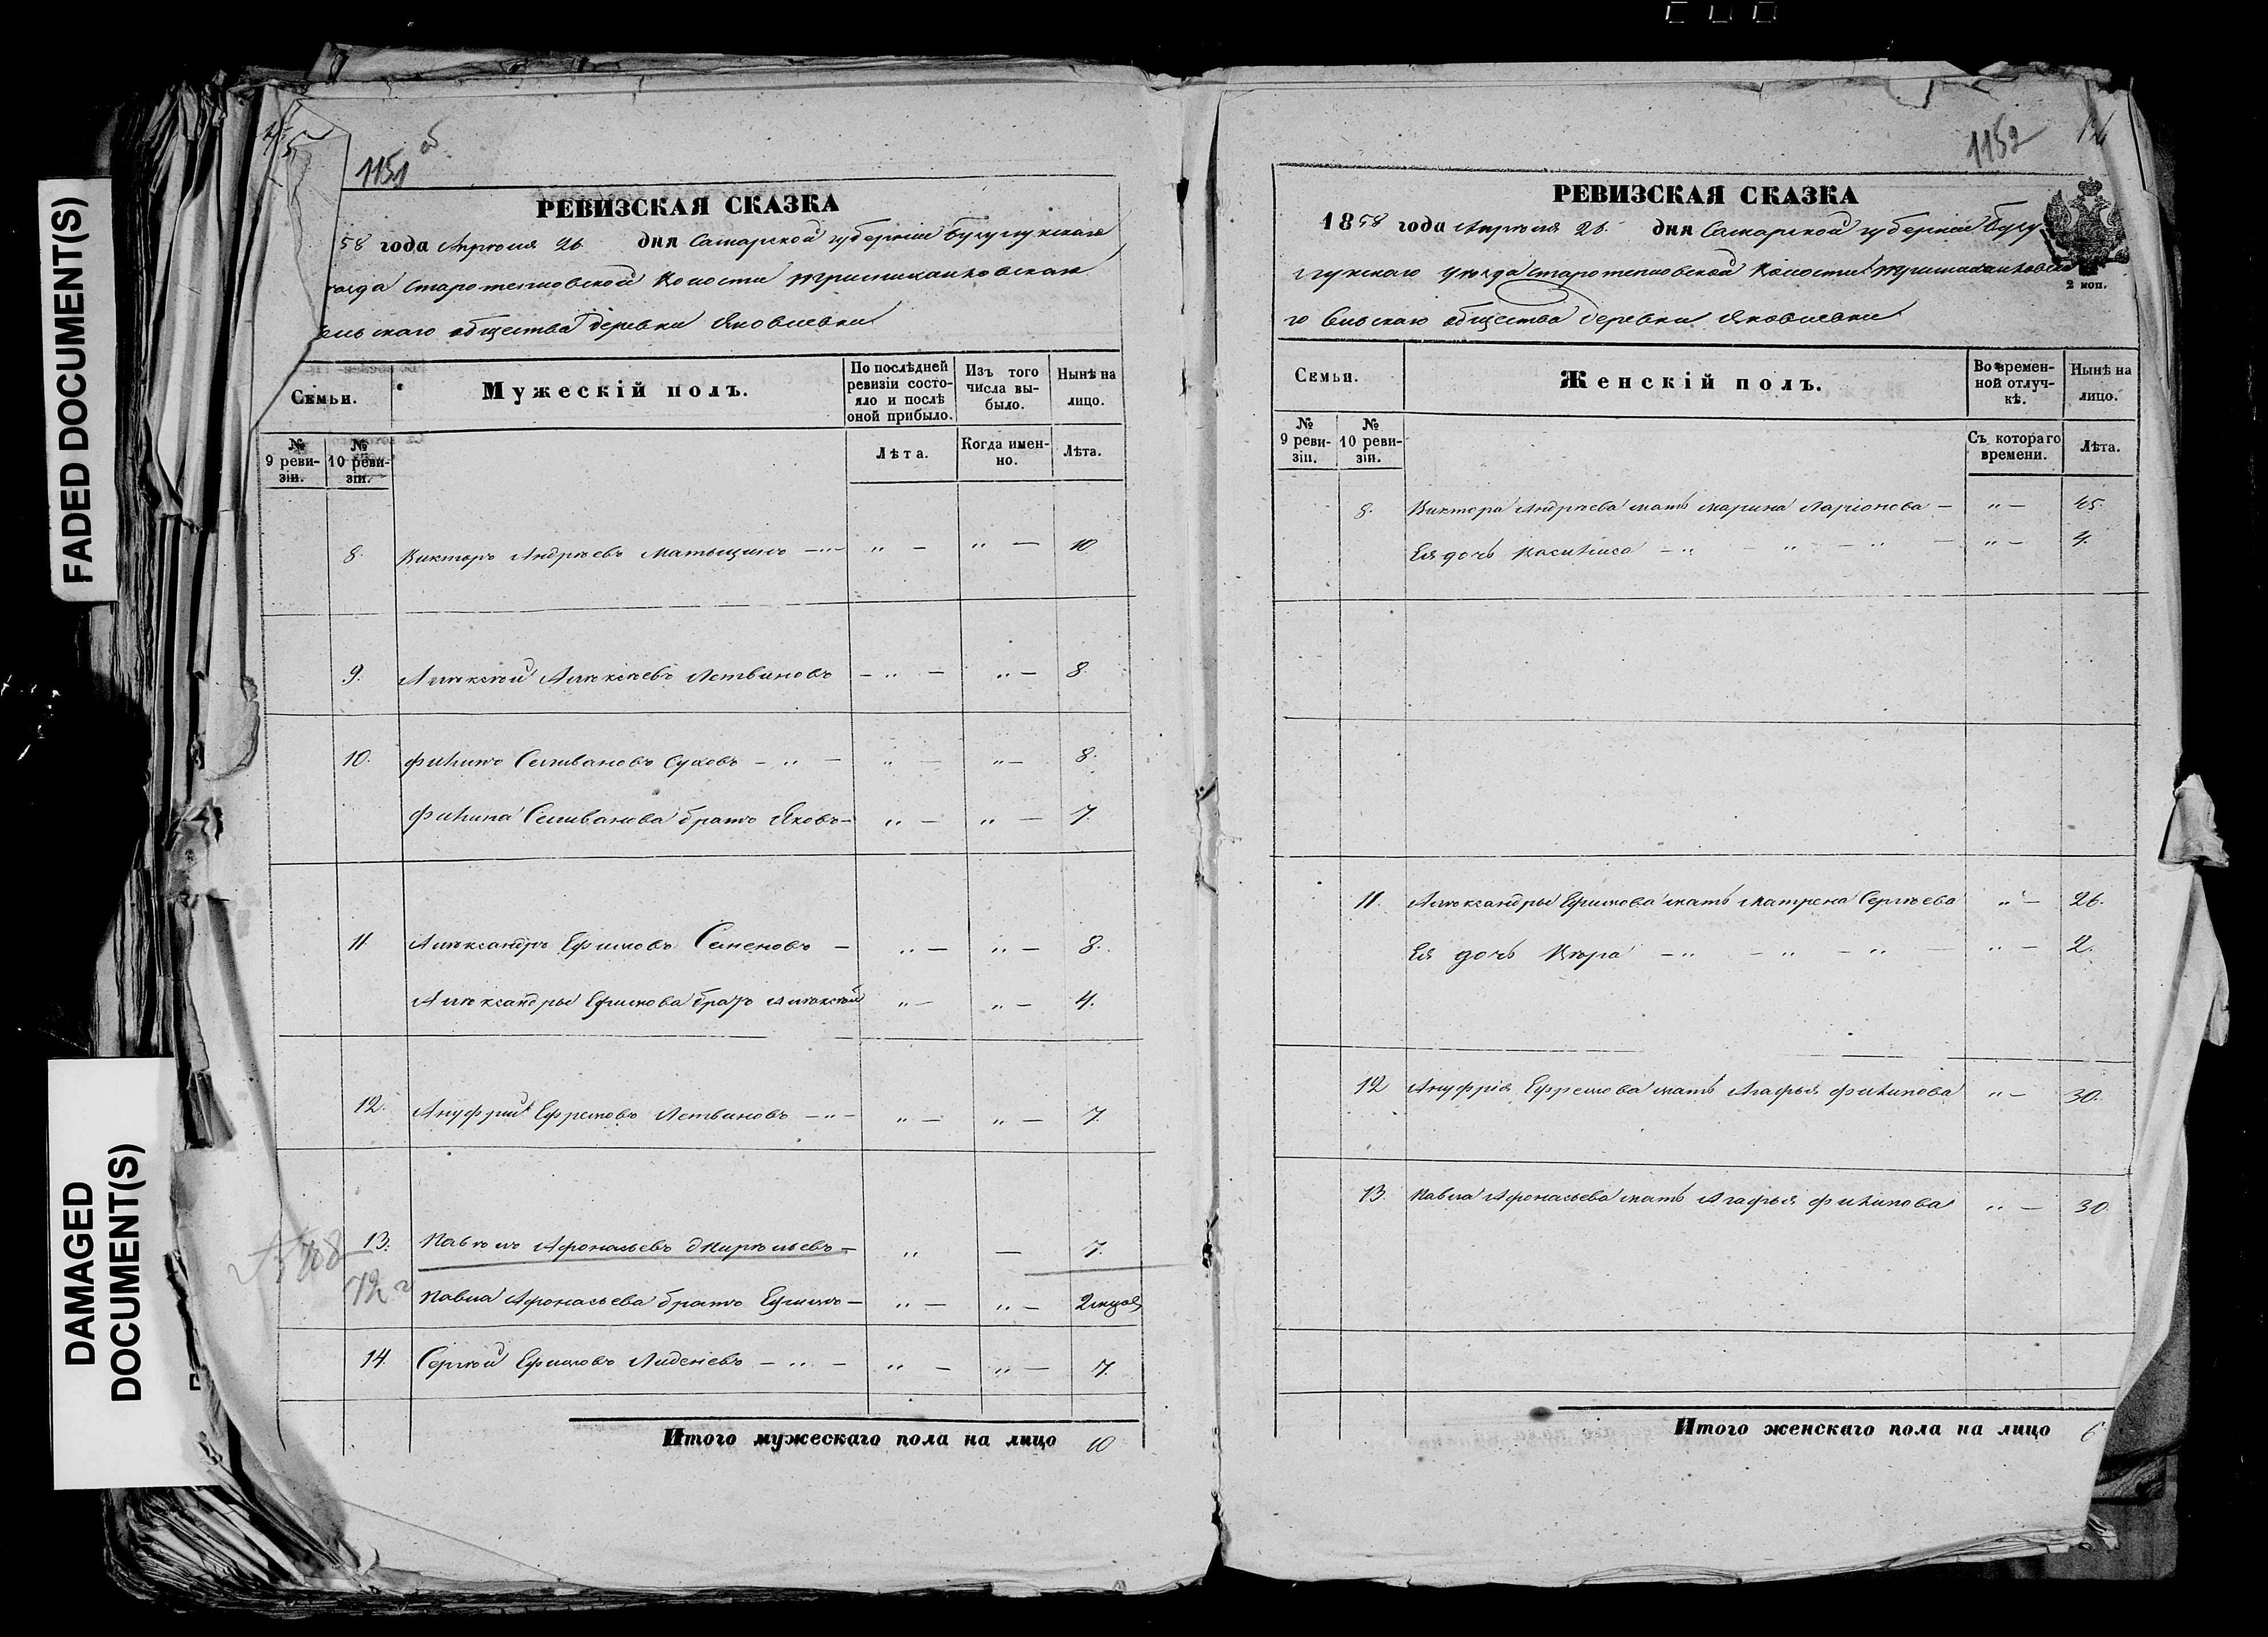 FADED DOCUMENT(S)
DAMAGED
DOCUMENT(S)
1151 об
РЕВИЗСКАЯ СКАЗКА
58 года Апрѣля 26 дня Самарской губерніи Бугурусланскаго
деревни Яковлевки
Семьи.
Мужескій полъ.
По послѣдней ревизіи состояло и послѣ оной прибыло.
Изъ того числа выбыло.
Нынѣ на лицо.
№ 9 ревизіи.
№ 10 ревизіи.
Лѣта.
Когда именно.
Лѣта.
8. Викторъ Андреевъ Матыцинъ — „ — „ — „ — 10
9. Алексѣй Алексѣевъ Летвиновъ — „ — „ — 8.
10. Филипъ Селивановъ Суховъ — „ — „ — „ — 8.
Филипа Селиванова братъ Яковъ — „ — „ — 7.
11. Александръ Ефимовъ Семеновъ — „ — „ — 8.
Александры Ефимова братъ Алексѣй „ — „ — 4.
12. Ануфрій Ефремовъ Летвиновъ — „ — „ — „ — 7.
13. Павелъ Афонасьевъ — „ — 7.
72
Павла Афонасьева братъ Ефимъ — „ — „ — 2
14. Сергѣй Ефимовъ — „ — „ — „ — 7.
Итого мужескаго пола на лицо 10
1152
РЕВИЗСКАЯ СКАЗКА
1858 года Апрѣля 26 дня Самарской губерніи Бугу
го Сельскаго общества деревни Яковлевки
2 коп.
Семьи.
Женскій полъ.
Во временной отлучкѣ.
Нынѣ на лицо.
№ 9 ревизіи.
№ 10 ревизіи.
Съ котораго времени.
Лѣта.
8. Виктора Андреева мать Марина Ларіонова — „ — 45.
Ея дочь Василиса — „ — „ — „ — „ — 4.
11. Александры Ефимова мать Матрена Сергѣева „ — 26.
Ея дочь Вѣра — „ — „ — „ — „ — 2.
12 Ануфрія Ефремова мать Агафья Филипова „ — 30.
13. Павла Афонасьева мать Агафья Филипова „ — 30
Итого женскаго пола на лицо 6